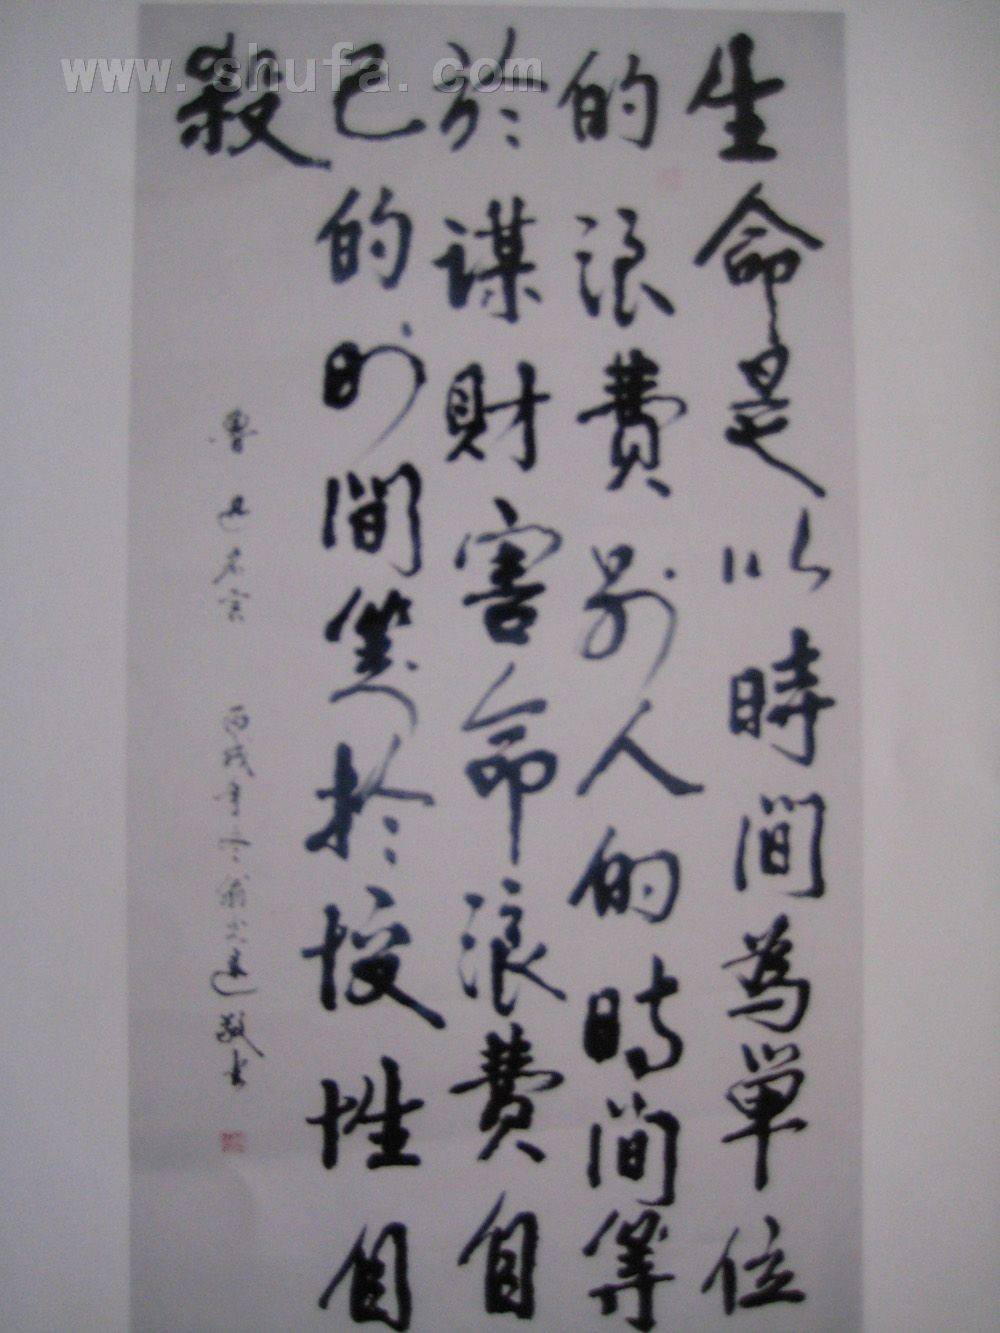 www.shufa.com
生命是以時间為單位
的浪费别人的时间等
於謀財害命浪費自
己的时间等於慢性自
殺
魯迅名言 丙戌年 敬书